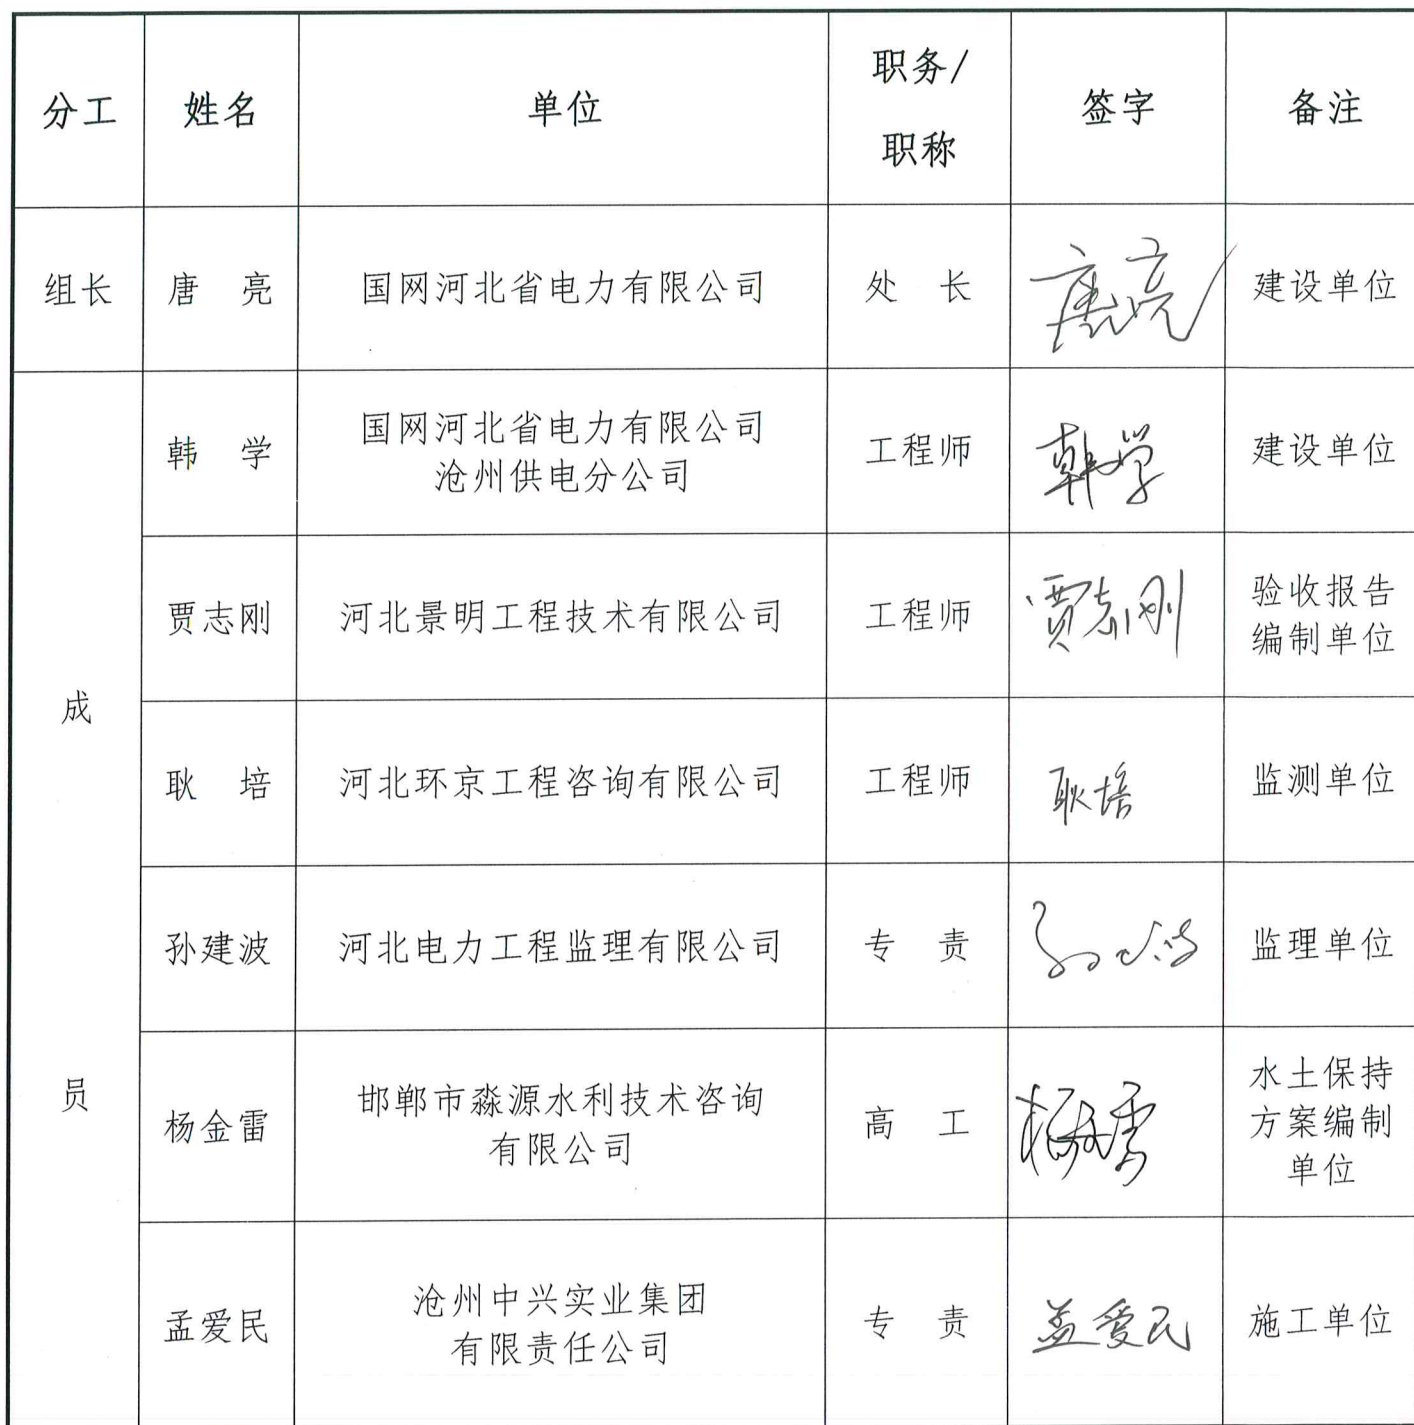 分工 姓名 单位 职务/职称 签字 备注
组长 唐 亮 国网河北省电力有限公司 处 长 唐亮 建设单位
成员
韩 学 国网河北省电力有限公司 工程师 韩学 建设单位
沧州供电分公司
贾志刚 河北景明工程技术有限公司 工程师 贾志刚 验收报告
编制单位
耿 培 河北环京工程咨询有限公司 工程师 耿培 监测单位
孙建波 河北电力工程监理有限公司 专 责 监理单位
杨金雷 邯郸市淼源水利技术咨询 高 工 水土保持
有限公司 方案编制
单位
孟爱民 沧州中兴实业集团 专 责 孟爱民 施工单位
有限责任公司